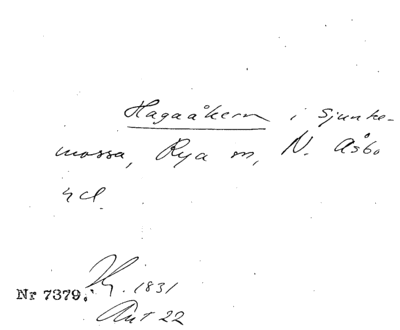 Hagaåkern i Sjunke-
mossa, Rya sn, N. Åsbo
hd.
Nr 7379. 1831
Ant 22